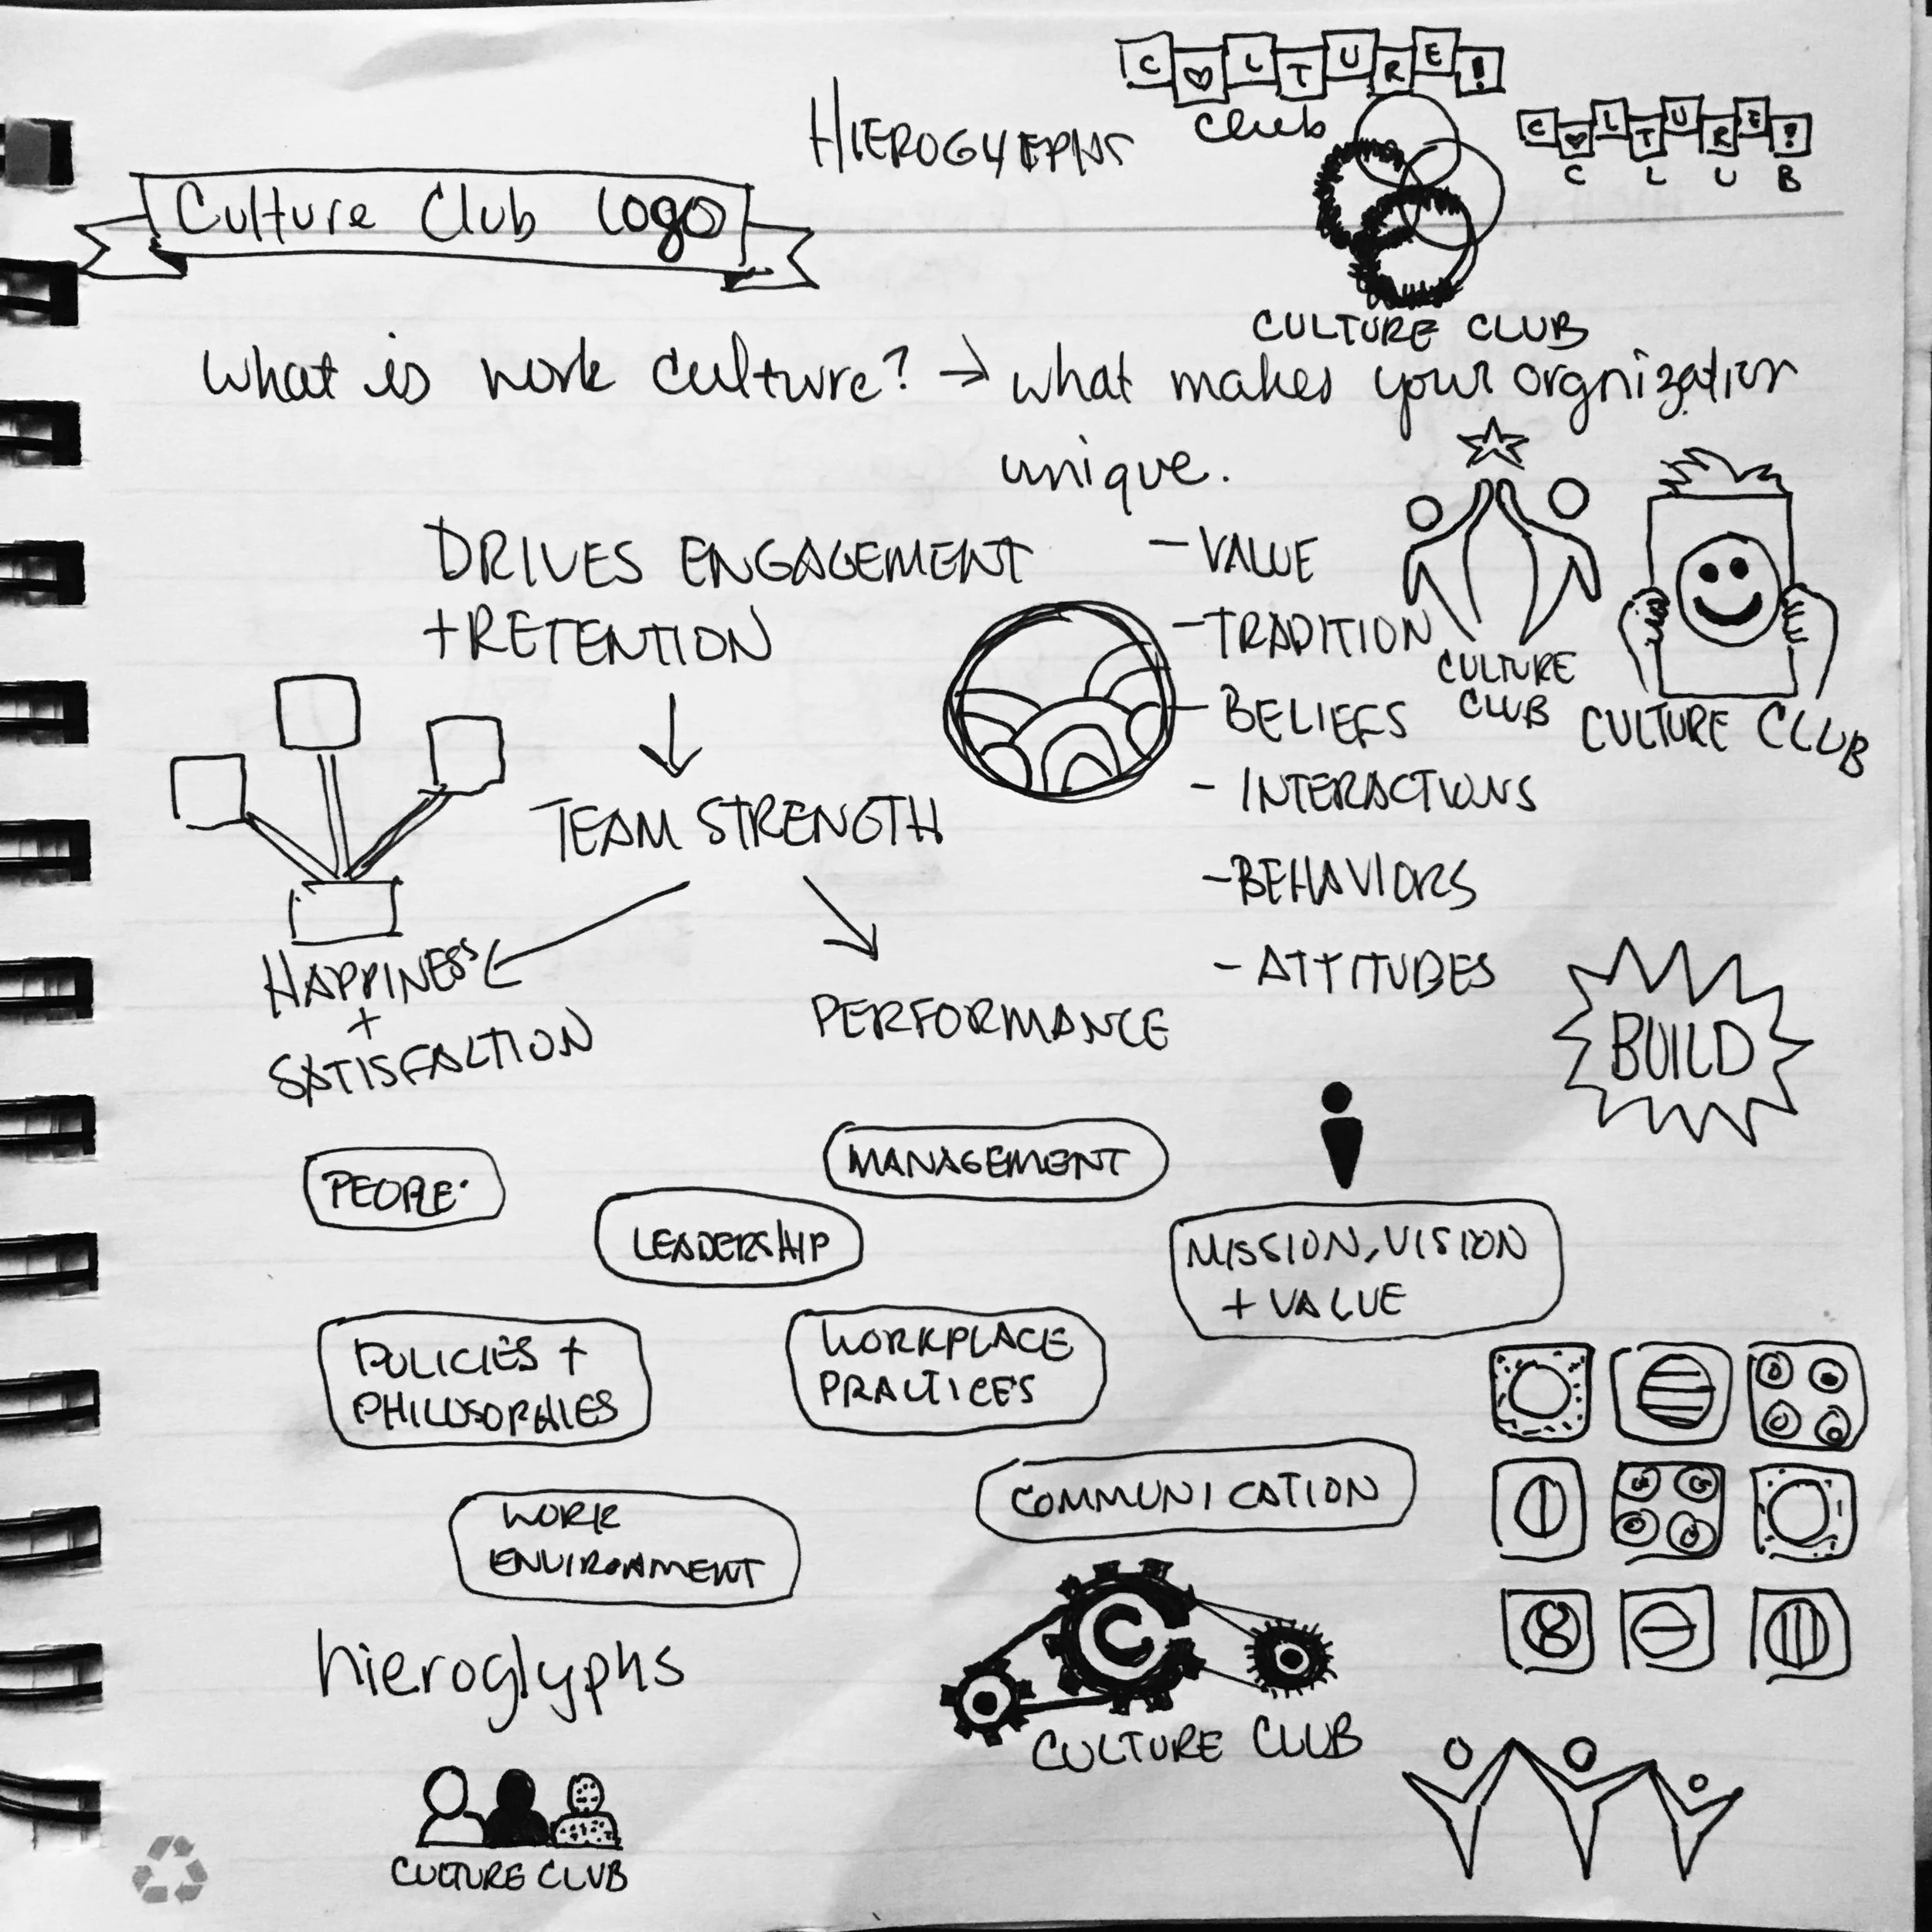 C♡LTURE!
club
HIEROGLYPHS
C♡LTURE!
C L U B
Culture Club logo
CULTURE CLUB
What is work culture? → what makes your orgnization
unique.
DRIVES ENGAGEMENT
+RETENTION
- VALUE
- TRADITION
- BELIEFS
- INTERACTIONS
- BEHAVIORS
- ATTITUDES
CULTURE
CLUB
CULTURE CLUB
TEAM STRENGTH
HAPPINESS
+
SATISFACTION
PERFORMANCE
BUILD
PEOPLE
MANAGEMENT
LEADERSHIP
MISSION, VISION
+ VALUE
POLICIES +
PHILOSOPHIES
WORKPLACE
PRACTICES
WORK
ENVIRONMENT
COMMUNICATION
hieroglyphs
C
CULTURE CLUB
CULTURE CLUB